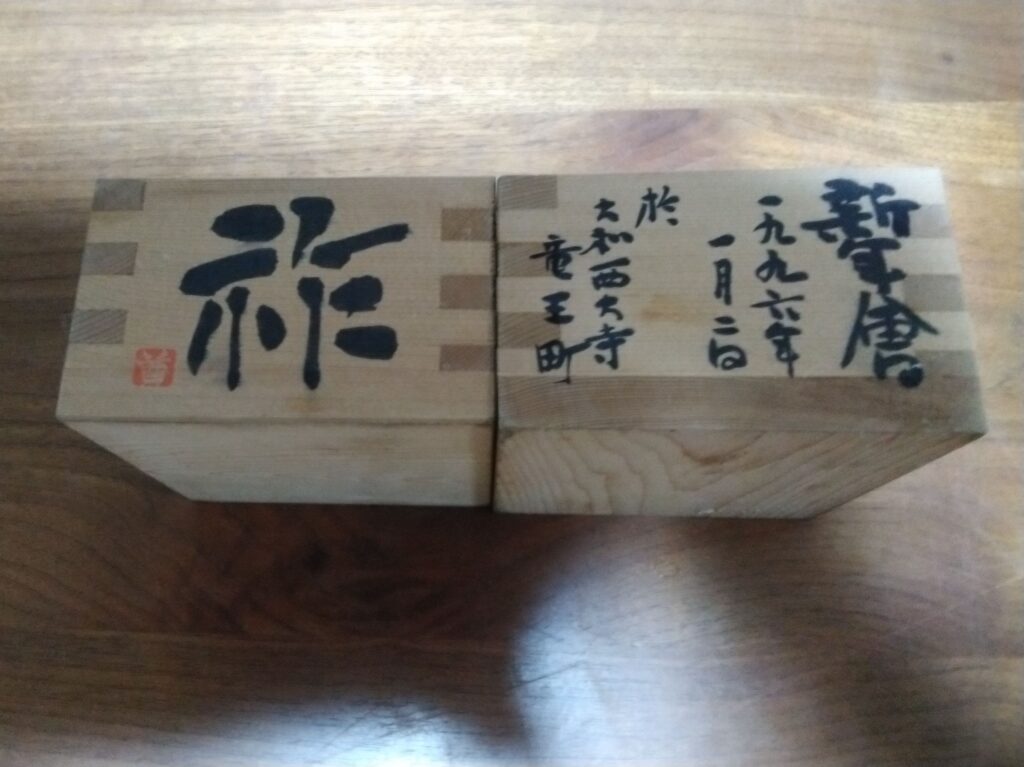 新年會
一九九六年
一月二日
於
大和西大寺
竜王町
祚